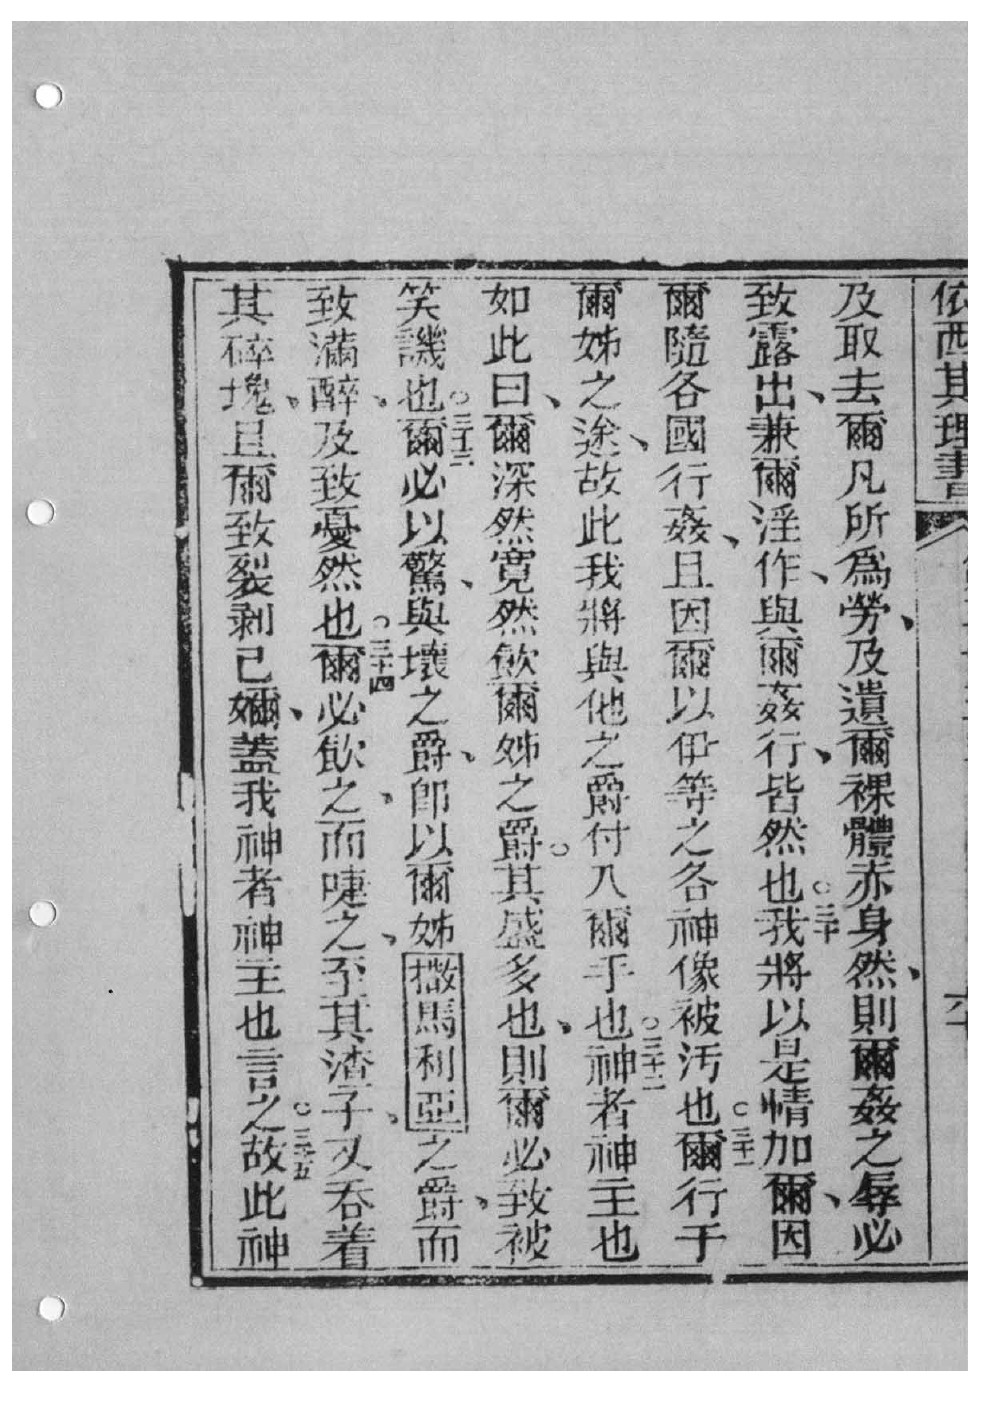 依西其理書
六十
及取去爾凡所為勞、及遺爾裸體赤身、然則爾姦之辱必
致露出、兼爾淫作、與爾姦行、皆然也○三十我將以是情加爾、因
爾隨各國行姦、且因爾以伊等之各神像被污也○三十一爾行于
爾姊之途、故此我將與他之爵付入爾手也○三十二神者神主也
如此曰、爾深然寬然飲爾姊之爵○其盛多也、則爾必致被
笑譏也○三十三爾必以驚、與壞之爵、即以爾姊撒馬利亞之爵、而
致滿醉、及致憂然也○三十四爾必飲之、而啑之、至其渣子、又吞着
其碎塊、且爾致裂剥己嬭、蓋我神者神主也言之○三十五故此神